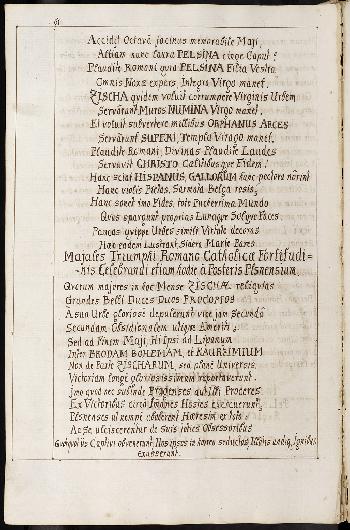 Accidit Octavâ facinus memorabile Maji,
Attiam nunc Laura PELSINA cinge Caput!
Plaudite Romani quia PELSINA Filia Vestra
Omnis Noxæ expers, Integra Virgo manet.
ZISCHA quidem voluit corrumpere Virginis Urbem
Servârunt Muros NUMINA Virgo manet.
Et voluit subvertere multibus ORPHANUS ARCES
Servârunt SUPERI, Templa Virago manet.
Plaudite Romani, Divinas Plaudite Laudes
Servavit CHRISTO Cælitibusque Fidem!
Hanc sciat HISPANUS, GALLORUM hanc pectora norint
Hanc violis Pictas, Sarmata Belga rosis,
Hanc sonet imo Fides, toto Pucterrima Mundo
Quos spargunt proprias Lunaque Solque Faces.
Paucas quippe Urbes simili Virtute decoras
Hac eadem Lustrant, Sidera Marte Pares
Majales Triumphi Romano Catholica Fortitudi=
nis Celebrandi etiam hodie à Posteris Plsnensium.
Quorum majores in hoc Mense ZISCHÆ reliquias
Grandes Belli Duces Duos PROCOPIOS
A sua Urbe gloriosè depulerunt vice jam Secunda
Secundam Obsidionalem utique Emeriti;
Sed ad Finem Maji, Hi Ipsi ad Lipanum
Inter BRODAM BOHEMAM, et KAURZIMIUM
Non de Parte ZISCHARUM, sed plane Universis
Victoriam longè gloriosissimam reportaverunt.
Imo quod nec sublimes Pragenses ausi Proceres
Ex Victoribus circa Omnes Hostes
Plsnenses ut nempe abolerent Hæresim ex toto
Ac se ulciscerentur de suis toties Obsessoribus
Quotquot iis Captivi obvenerunt, Nos ipsos in horreo seductos, Ignibus
Exusserunt.